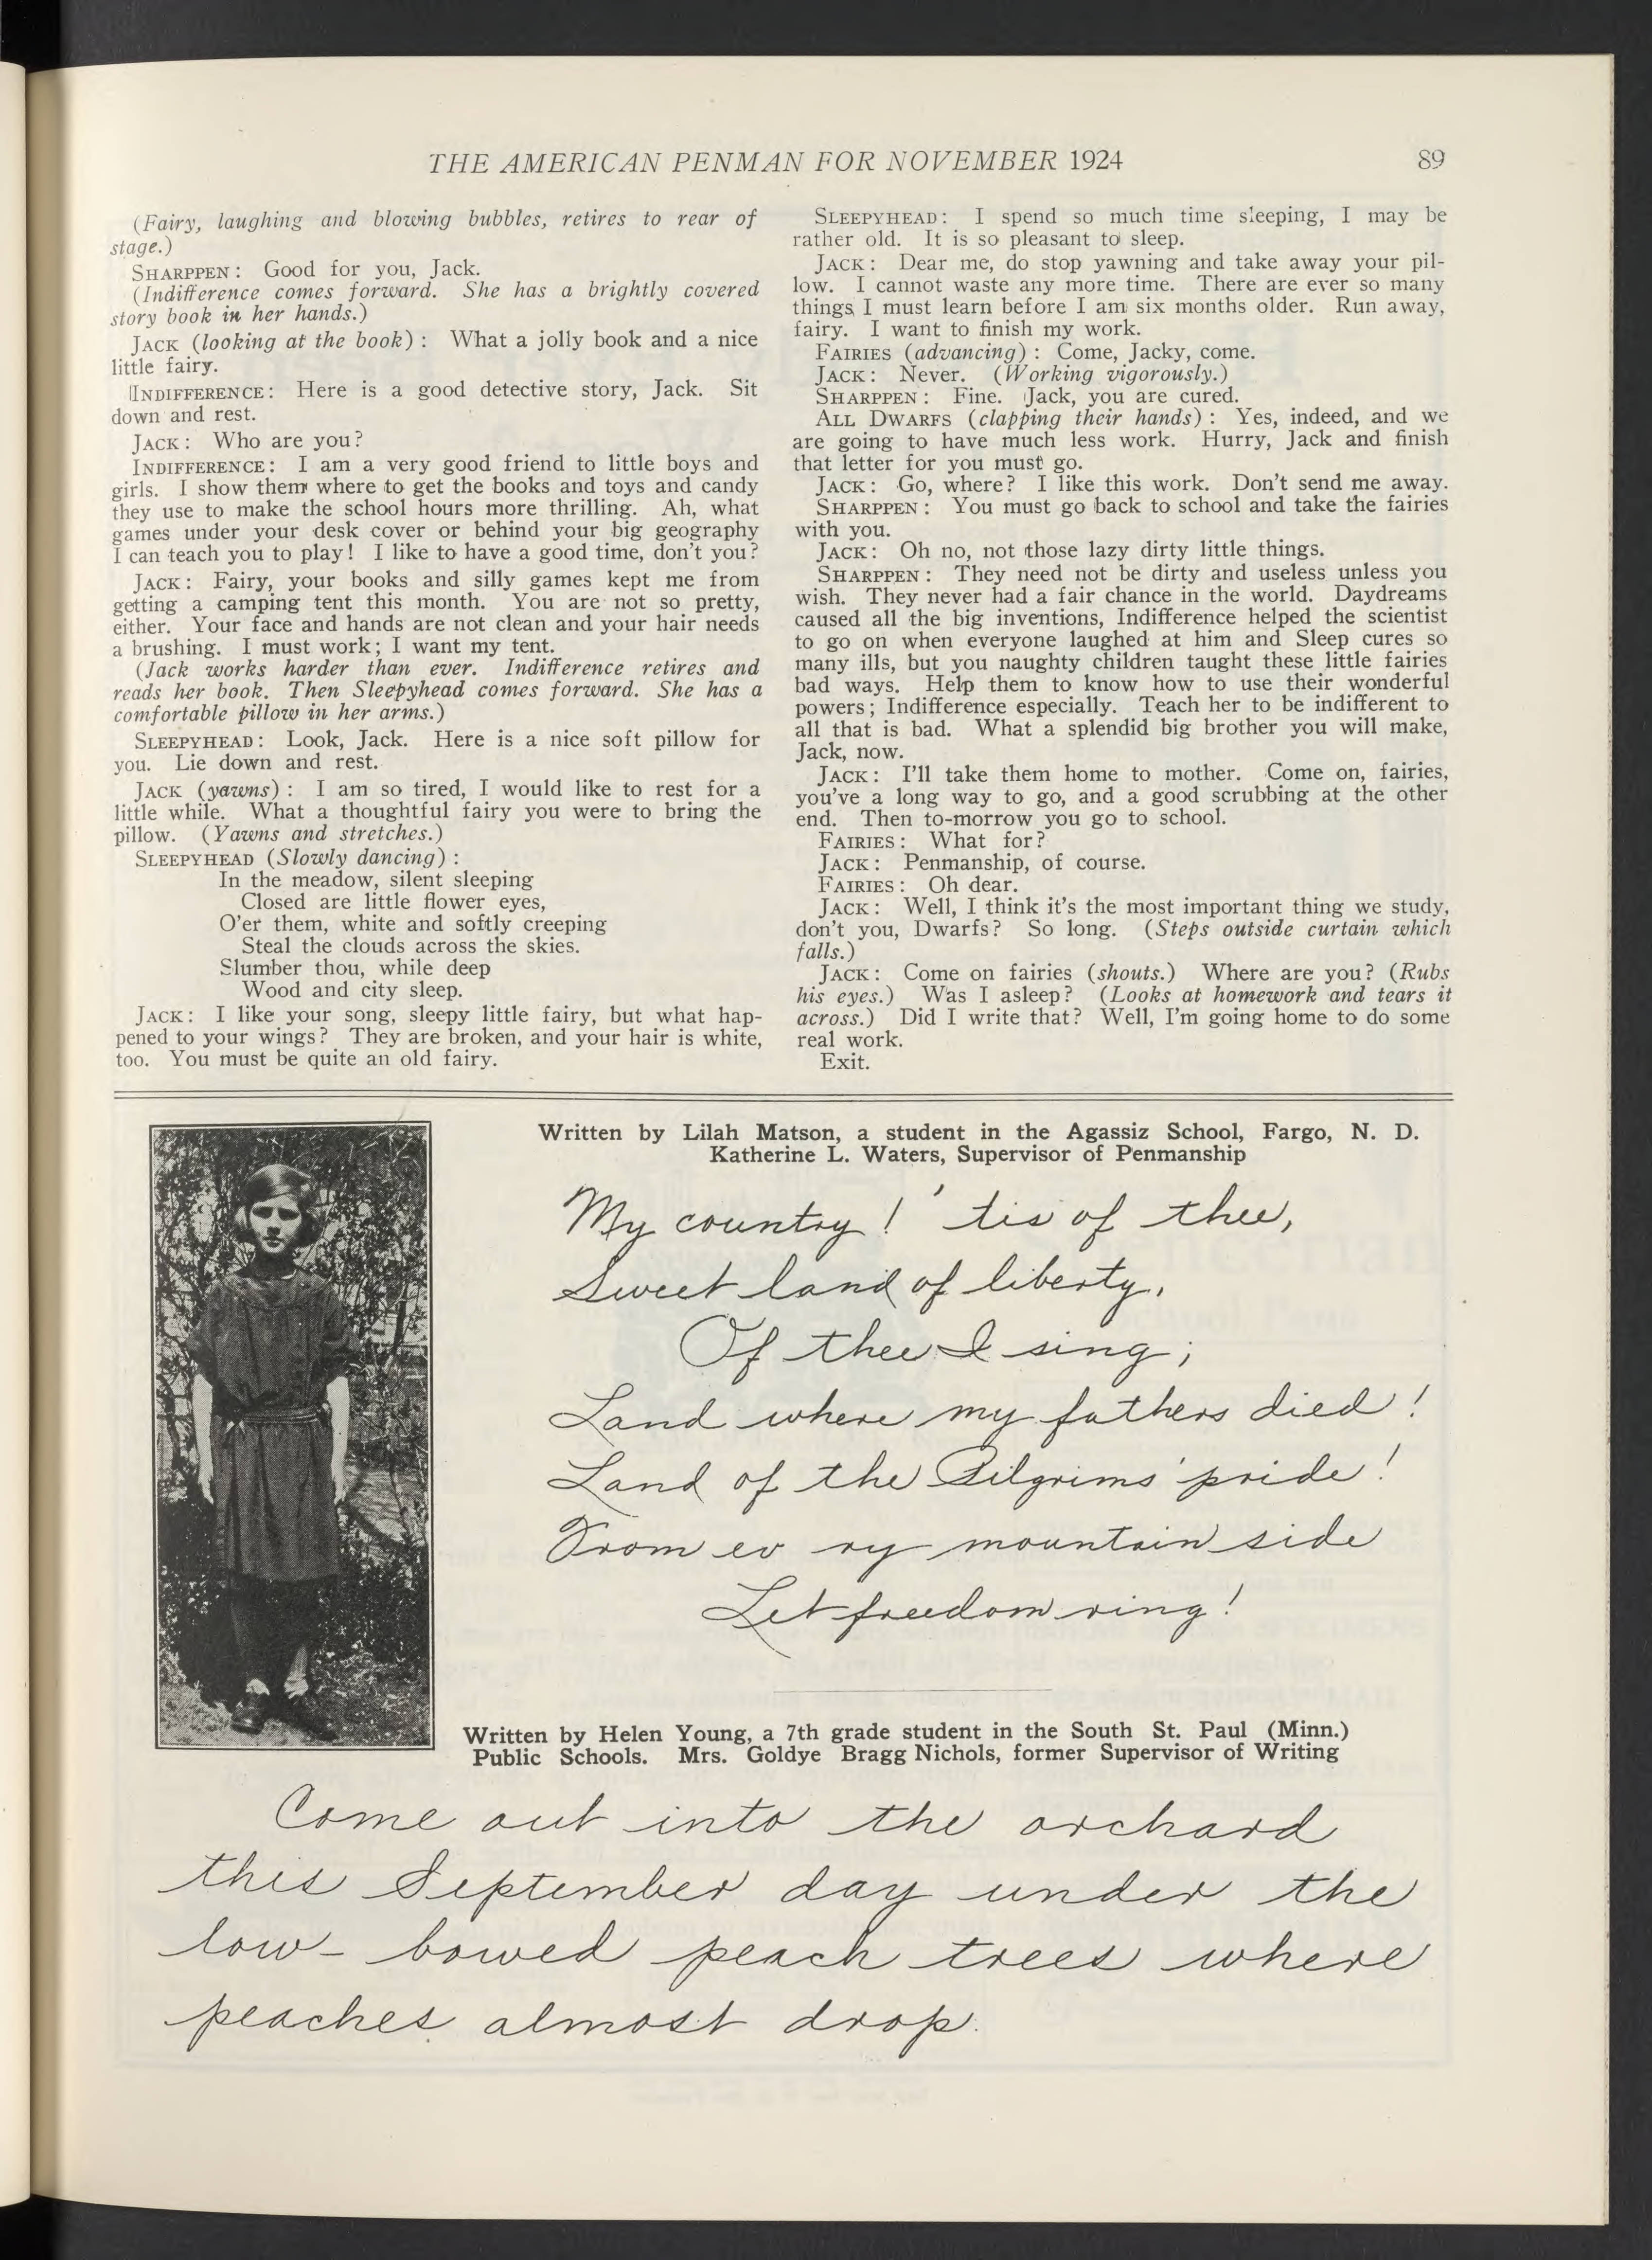 THE AMERICAN PENMAN FOR NOVEMBER 1924
89
(Fairy, laughing and blowing bubbles, retires to rear of
stage.)
SHARPPEN: Good for you, Jack.
(Indifference comes forward. She has a brightly covered
story book in her hands.)
JACK (looking at the book): What a jolly book and a nice
little fairy.
INDIFFERENCE: Here is a good detective story, Jack. Sit
down and rest.
JACK: Who are you?
INDIFFERENCE: I am a very good friend to little boys and
girls. I show them where to get the books and toys and candy
they use to make the school hours more thrilling. Ah, what
games under your desk cover or behind your big geography
I can teach you to play! I like to have a good time, don't you?
JACK: Fairy, your books and silly games kept me from
getting a camping tent this month. You are not so pretty,
either. Your face and hands are not clean and your hair needs
a brushing. I must work; I want my tent.
(Jack works harder than ever. Indifference retires and
reads her book. Then Sleepyhead comes forward. She has a
comfortable pillow in her arms.)
SLEEPYHEAD: Look, Jack. Here is a nice soft pillow for
you. Lie down and rest.
JACK (yawns): I am so tired, I would like to rest for a
little while. What a thoughtful fairy you were to bring the
pillow. (Yawns and stretches.)
SLEEPYHEAD (Slowly dancing):
In the meadow, silent sleeping
Closed are little flower eyes,
O'er them, white and softly creeping
Steal the clouds across the skies.
Slumber thou, while deep
Wood and city sleep.
JACK: I like your song, sleepy little fairy, but what hap-
pened to your wings? They are broken, and your hair is white,
too. You must be quite an old fairy.
SLEEPYHEAD: I spend so much time sleeping, I may be
rather old. It is so pleasant to sleep.
JACK: Dear me, do stop yawning and take away your pil-
low. I cannot waste any more time. There are ever so many
things I must learn before I am six months older. Run away,
fairy. I want to finish my work.
FAIRIES (advancing): Come, Jacky, come.
JACK: Never. (Working vigorously.)
SHARPPEN: Fine. Jack, you are cured.
ALL DWARFS (clapping their hands): Yes, indeed, and we
are going to have much less work. Hurry, Jack and finish
that letter for you must go.
JACK: Go, where? I like this work. Don't send me away.
SHARPPEN: You must go back to school and take the fairies
with you.
JACK: Oh no, not those lazy dirty little things.
SHARPPEN: They need not be dirty and useless unless you
wish. They never had a fair chance in the world. Daydreams
caused all the big inventions, Indifference helped the scientist
to go on when everyone laughed at him and Sleep cures so
many ills, but you naughty children taught these little fairies
bad ways. Help them to know how to use their wonderful
powers; Indifference especially. Teach her to be indifferent to
all that is bad. What a splendid big brother you will make,
Jack, now.
JACK: I'll take them home to mother. Come on, fairies,
you've a long way to go, and a good scrubbing at the other
end. Then to-morrow you go to school.
FAIRIES: What for?
JACK: Penmanship, of course.
FAIRIES: Oh dear.
JACK: Well, I think it's the most important thing we study,
don't you, Dwarfs? So long. (Steps outside curtain which
falls.)
JACK: Come on fairies (shouts.) Where are you? (Rubs
his eyes.) Was I asleep? (Looks at homework and tears it
across.) Did I write that? Well, I'm going home to do some
real work.
Exit.
Written by Lilah Matson, a student in the Agassiz School, Fargo, N. D.
Katherine L. Waters, Supervisor of Penmanship
My country! 'tis of thee,
Sweet land of liberty,
Of thee I sing;
Land where my fathers died!
Land of the Pilgrims' pride!
From ev ry mountain side
Let freedom ring!
Written by Helen Young, a 7th grade student in the South St. Paul (Minn.)
Public Schools. Mrs. Goldye Bragg Nichols, former Supervisor of Writing
Come out into the orchard
this September day under the
low-bowed peach trees where
peaches almost drop.